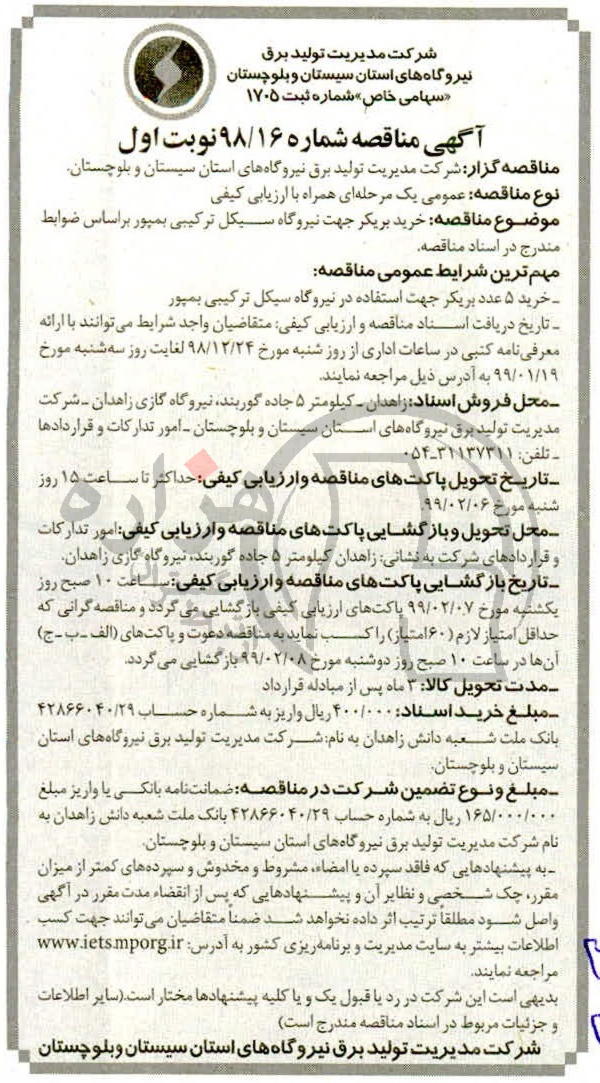 شرکت مدیریت تولید برق
نیروگاه‌های استان سیستان و بلوچستان
«سهامی خاص» شماره ثبت ۱۷۰۵
آگهی مناقصه شماره ۹۸/۱۶ نوبت اول
مناقصه گزار: شرکت مدیریت تولید برق نیروگاه‌های استان سیستان و بلوچستان.
نوع مناقصه: عمومی یک مرحله‌ای همراه با ارزیابی کیفی
موضوع مناقصه: خرید بریکر جهت نیروگاه سیکل ترکیبی بمپور براساس ضوابط
مندرج در اسناد مناقصه.
مهم‌ترین شرایط عمومی مناقصه:
ـ خرید ۵ عدد بریکر جهت استفاده در نیروگاه سیکل ترکیبی بمپور
ـ تاریخ دریافت اسناد مناقصه و ارزیابی کیفی: متقاضیان واجد شرایط می‌توانند با ارائه
معرفی‌نامه کتبی در ساعات اداری از روز شنبه مورخ ۹۸/۱۲/۲۴ لغایت روز سه‌شنبه مورخ
۹۹/۰۱/۱۹ به آدرس ذیل مراجعه نمایند.
ـ محل فروش اسناد: زاهدان ـ کیلومتر ۵ جاده گوربند، نیروگاه گازی زاهدان ـ شرکت
مدیریت تولید برق نیروگاه‌های استان سیستان و بلوچستان ـ امور تدارکات و قراردادها
ـ تلفن: ۳۱۱۳۷۳۱۱-۰۵۴
ـ تاریخ تحویل پاکت‌های مناقصه و ارزیابی کیفی: حداکثر تا ساعت ۱۵ روز
شنبه مورخ ۹۹/۰۲/۰۶.
ـ محل تحویل و بازگشایی پاکت‌های مناقصه و ارزیابی کیفی: امور تدارکات
و قراردادهای شرکت به نشانی: زاهدان کیلومتر ۵ جاده گوربند، نیروگاه گازی زاهدان.
ـ تاریخ بازگشایی پاکت‌های مناقصه و ارزیابی کیفی: ساعت ۱۰ صبح روز
یکشنبه مورخ ۹۹/۰۲/۰۷ پاکت‌های ارزیابی کیفی بازگشایی می‌گردد و مناقصه‌گرانی که
حداقل امتیاز لازم (۶۰ امتیاز) را کسب نماید به مناقصه دعوت و پاکت‌های (الف ـ ب ـ ج)
آن‌ها در ساعت ۱۰ صبح روز دوشنبه مورخ ۹۹/۰۲/۰۸ بازگشایی می‌گردد.
ـ مدت تحویل کالا: ۳ ماه پس از مبادله قرارداد
ـ مبلغ خرید اسناد: ۴۰۰/۰۰۰ ریال واریز به شماره حساب ۴۲۸۶۶۰۴۰/۲۹
بانک ملت شعبه دانش زاهدان به نام: شرکت مدیریت تولید برق نیروگاه‌های استان
سیستان و بلوچستان.
ـ مبلغ و نوع تضمین شرکت در مناقصه: ضمانت‌نامه بانکی یا واریز مبلغ
۱۶۵/۰۰۰/۰۰۰ ریال به شماره حساب ۴۲۸۶۶۰۴۰/۲۹ بانک ملت شعبه دانش زاهدان به
نام شرکت مدیریت تولید برق نیروگاه‌های استان سیستان و بلوچستان.
ـ به پیشنهادهایی که فاقد سپرده یا امضاء، مشروط و مخدوش و سپرده‌های کمتر از میزان
مقرر، چک شخصی و نظایر آن و پیشنهادهایی که پس از انقضاء مدت مقرر در آگهی
واصل شود مطلقاً ترتیب اثر داده نخواهد شد ضمناً متقاضیان می‌توانند جهت کسب
اطلاعات بیشتر به سایت مدیریت و برنامه‌ریزی کشور به آدرس: www.iets.mporg.ir
مراجعه نمایند.
بدیهی است این شرکت در رد یا قبول یک و یا کلیه پیشنهادها مختار است. (سایر اطلاعات
و جزئیات مربوط در اسناد مناقصه مندرج است)
شرکت مدیریت تولید برق نیروگاه‌های استان سیستان و بلوچستان
هزاره